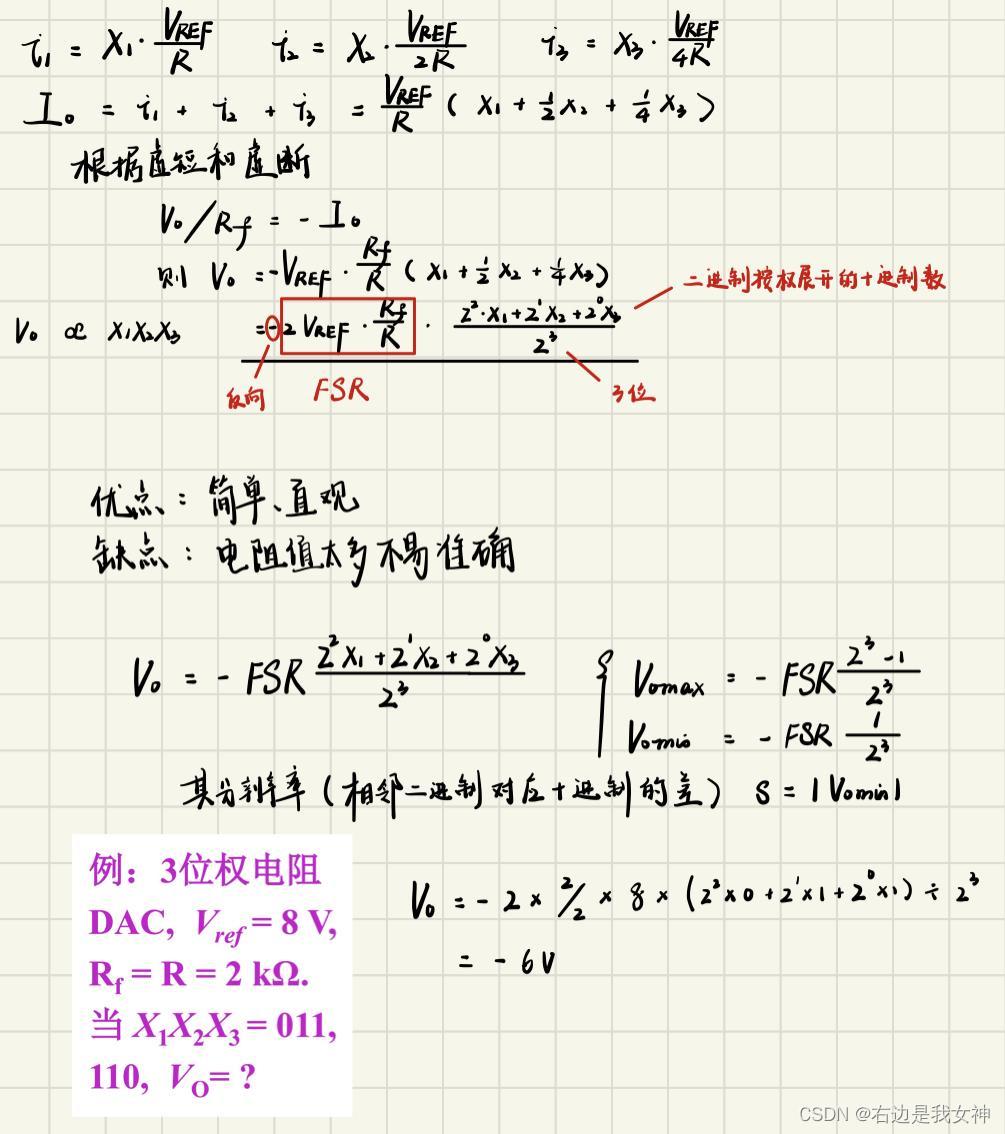 i₁ = X₁ · V_REF/R    i₂ = X₂ · V_REF/2R    i₃ = X₃ · V_REF/4R
I₀ = i₁ + i₂ + i₃ = V_REF/R ( X₁ + 1/2 X₂ + 1/4 X₃ )
根据虚短和虚断
V₀/R_f = - I₀
则 V₀ = -V_REF · R_f/R ( X₁ + 1/2 X₂ + 1/4 X₃ )
二进制按权展开的十进制数
V₀ ∝ X₁X₂X₃    = -2 V_REF · R_f/R · (2²·X₁ + 2¹X₂ + 2⁰X₃)/2³
反向    FSR    3位
优点：简单、直观
缺点：电阻值太多不易准确
V₀ = - FSR (2²X₁ + 2¹X₂ + 2⁰X₃)/2³    { V₀max = - FSR (2³-1)/2³
V₀min = - FSR 1/2³
其分辨率（相邻二进制对应十进制的差） S = |V₀min|
例：3位权电阻
DAC, V_ref = 8 V,
R_f = R = 2 kΩ.
当 X₁X₂X₃ = 011,
110, V_O= ?
V₀ = - 2 × 2/2 × 8 × (2²×0 + 2¹×1 + 2⁰×1) ÷ 2³
= - 6V
CSDN @右边是我女神